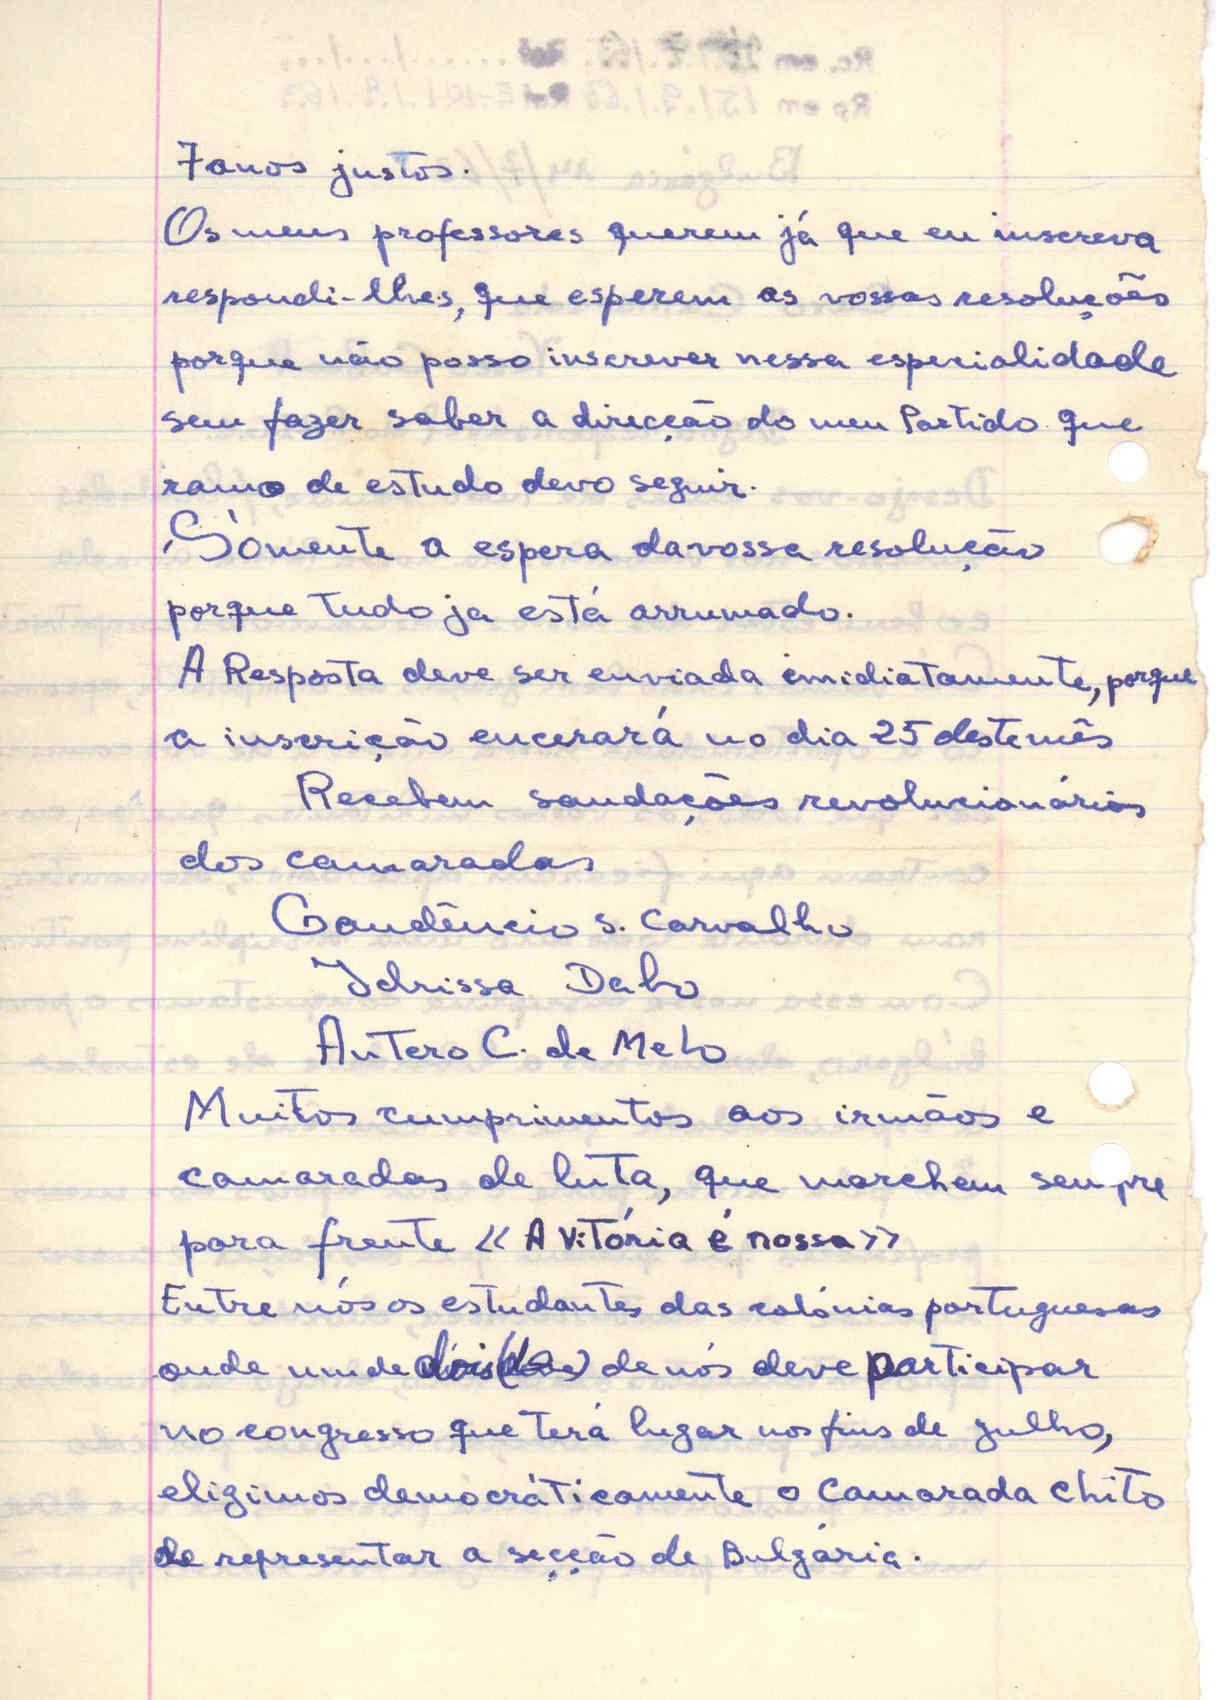 7 anos justos.
Os meus professores querem já que eu inscreva
respondi-lhes, que esperem as vossas resoluções
porque não posso inscrever nessa especialidade
sem fazer saber a direcção do meu Partido que
ramo de estudo devo seguir.
Sómente a espera da vossa resolução
porque tudo ja está arrumado.
A Resposta deve ser enviada imidiatamente, porque
a inscrição encerará no dia 25 deste mês
Recebem saudações revolucionários
dos camaradas
Gaudêncio S. Carvalho
Idrissa Dabo
Antero C. de Melo
Muitos cumprimentos aos irmãos e
camaradas de luta, que marchem sempre
para frente « A Vitória é nossa »
Entre nós os estudantes das colónias portuguesas
onde um de dois de nós deve participar
no congresso que terá lugar nos fins de julho,
eligimos democráticamente o Camarada Chito
de representar a secção de Bulgária.